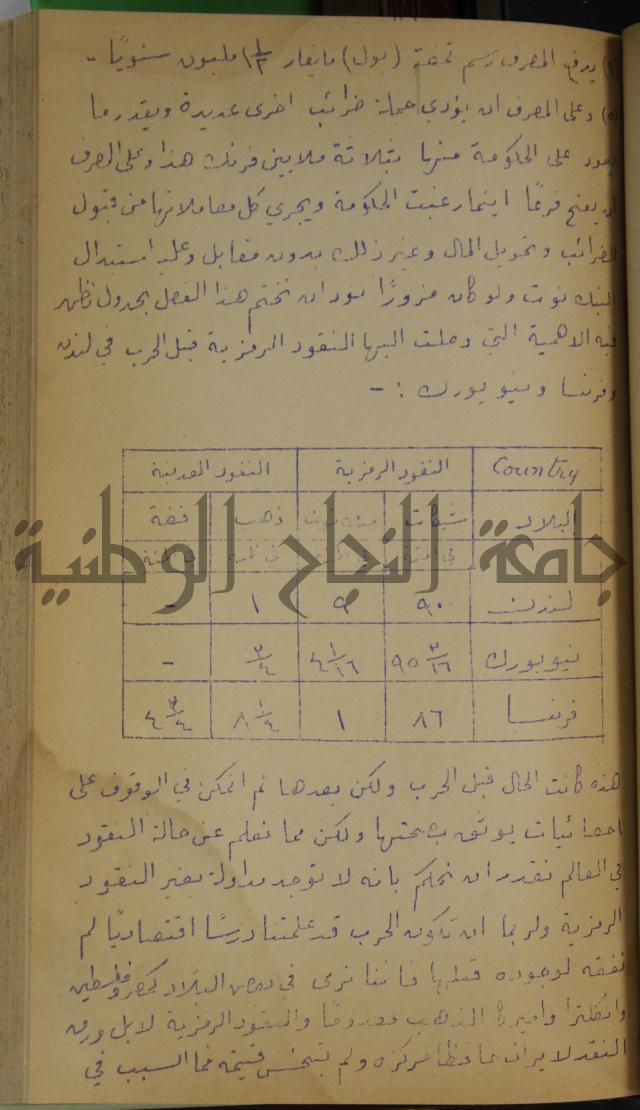 (٤) يدفع المصرف رسم تمغة (بول) بمقدار ١/٢ ١ مليون سنويًا -
(٥) وعلى المصرف ان يؤدي جملة ضرائب اخرى عديدة ويقدر ما
يعود على الحكومة منها بثلاثة ملايين فرنك هذا وعلى المصرف
ان يفتح فرعًا اينما رغبت الحكومة ويجري كل معاملاتها من قبول
الضرائب وتحويل المال وغير ذلك بدون مقابل وعليه استبدال
البنك نوت ولو كان مزورًا نود ان نختم هذا الفصل بجدول نظهر
فيه الاهمية التي وصلت اليها النقود الرمزية قبل الحرب في لندن
وفرنسا ونيويورك : -
Country النقود الرمزية النقود المعدنية
البلاد شكات بنك نوت ذهب فضة
في المئة في المئة في المئة في المئة
لندن ٩٠ ٩ ١ -
نيويورك ٩٥ ٣/١٦ ٤ ١/١٦ ٣/٤ -
فرنسا ٨٦ ١ ٨ ١/٤ ٤ ٣/٤
جامعة النجاح الوطنية
هذه كانت الحال قبل الحرب ولكن بعدها لم اتمكن في الوقوف على
احصائيات يوثق بصحتها ولكن مما نعلم عن حالة النقود
في العالم نقدر ان نحكم بانه لا توجد مداولة بغير النقود
الرمزية ولربما ان تكون الحرب قد علمتنا درسًا اقتصاديًا لم
نفقه لوجوده قبلها فاننا نرى في بعض البلاد كمصر وفلسطين
وانكلترا واميركا الذهب معدومًا والنقود الرمزية لا بل ورق
النقد لا يزال محافظا مركزه ولم تبخس قيمته فما السبب في